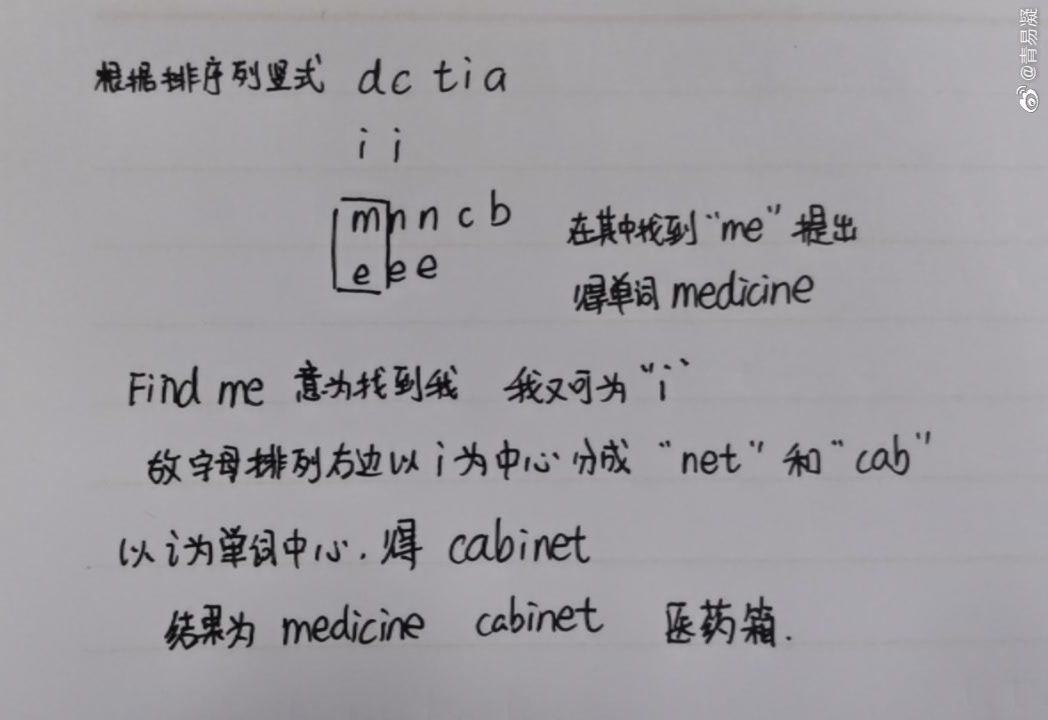 根据排序列竖式 dc tia
i i
mnncb 在其中找到“me”提出
eee 得单词medicine
Find me 意为找到我 我又可为“i”
故字母排列右边以i为中心分成“net”和“cab”
以i为单词中心.得 cabinet
结果为 medicine cabinet 医药箱.
@青易凝